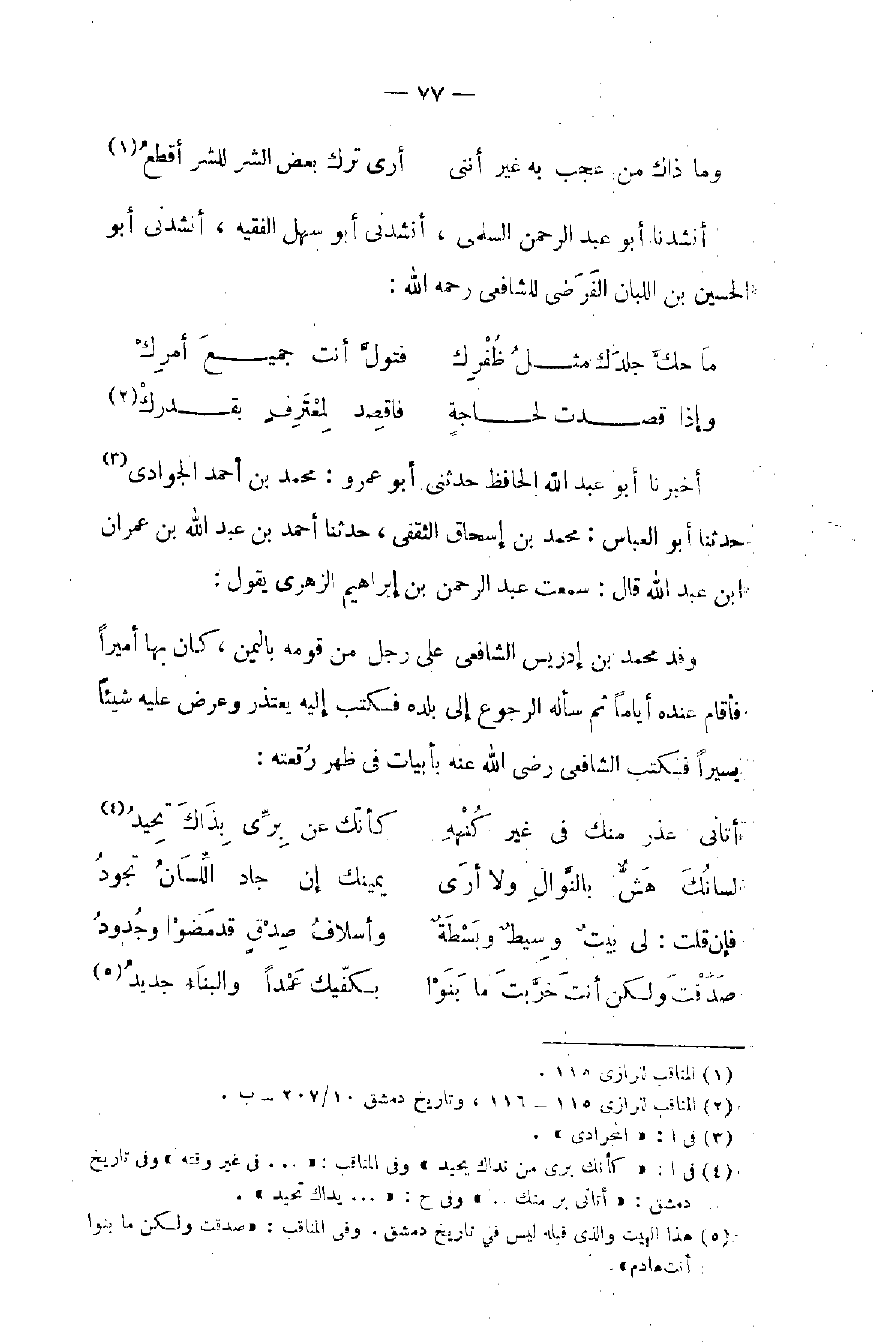 — ٧٧ —
وما ذاك من عجب به غير أننى أرى ترك بعض الشر للشر أقطعُ (١)
أنشدنا أبو عبد الرحمن السلمى ، أنشدنى أبو سهل الفقيه ، أنشدنى أبو
الحسين بن اللبان الفَرَضى للشافعى رحمه الله :
مَا حكَّ جلدَك مثـــلُ ظُفْرِك فتولَّ أنت جميـــعَ أمرِكْ
وإذا قصـــدت لحـــاجةٍ فاقصِد لِمُعْتَرِفٍ بقـــدركْ (٢)
أخبرنا أبو عبد الله الحافظ حدثنى أبو عمرو : محمد بن أحمد الجوادى (٣)
حدثنا أبو العباس : محمد بن إسحاق الثقفى ، حدثنا أحمد بن عبد الله بن عمران
ابن عبد الله قال : سمعت عبد الرحمن بن إبراهيم الزهرى يقول :
وفد محمد بن إدريس الشافعى على رجل من قومه باليمن ، كان بها أميراً
فأقام عنده أياماً ثم سأله الرجوع إلى بلده فكتب إليه يعتذر وعرض عليه شيئاً
يسيراً فكتب الشافعى رضى الله عنه بأبيات فى ظهر رُقعته :
أتانى عذر منك فى غير كُنْههِ كأنّك عن بِرِّى بِذَاكَ تَحِيدُ (٤)
لسانُكَ هَشٌّ بالنَّوالِ ولا أرَى يمينك إن جاد اللِّسَانُ تجودُ
فإن قلت : لى بيتٌ وسِيطٌ وبَسْطَةٌ وأسلافُ صِدْقٍ قد مَضَوْا وجُدودُ
صَدَقْتَ ولكن أنتَ خَرَّبتَ ما بَنَوْا بكفّيك عَمْداً والبناءُ جديدُ (٥)
(١) المناقب للرازى ١١٥ .
(٢) المناقب للرازى ١١٥ – ١١٦ ، وتاريخ دمشق ١٠/٢٠٧ – ب .
(٣) فى ا : « الجرادى » .
(٤) فى ا : « كأنك برى من نداك يحيد » وفى المناقب : « ... فى غير وقته » وفى تاريخ
دمشق : « أتانى بر منك .. » وفى ح : « ... يداك تحيد » .
(٥) هذا البيت والذى قبله ليس في تاريخ دمشق . وفى المناقب : « صدقت ولكن ما بنوا
أنت هادم » .